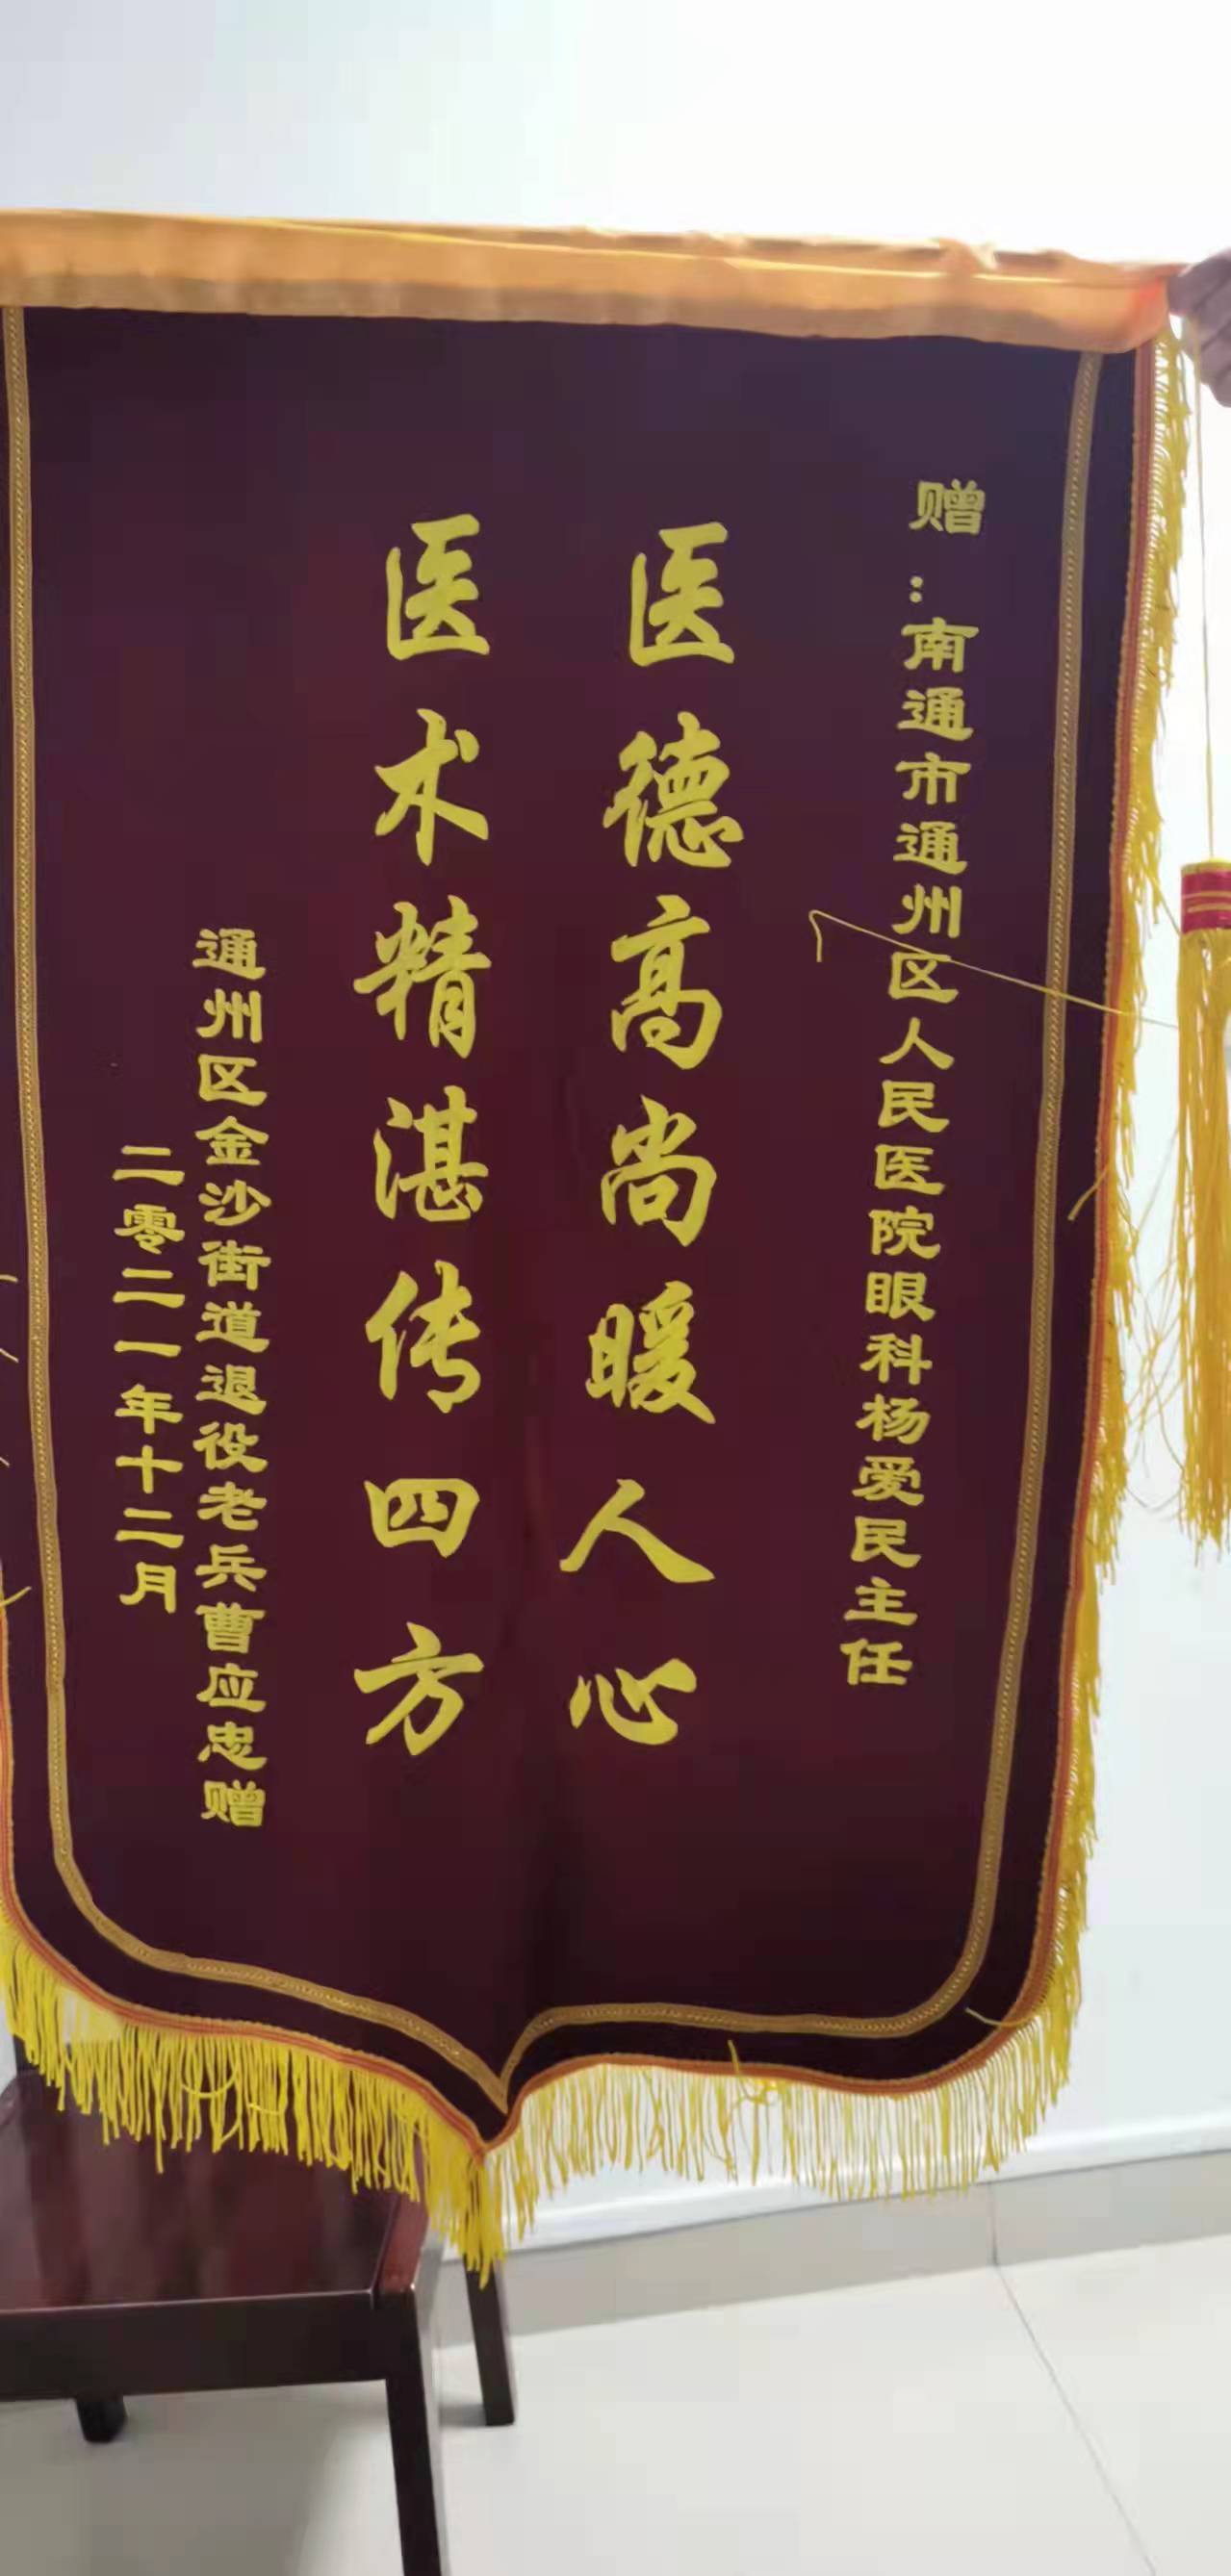 赠：南通市通州区人民医院眼科杨爱民主任
医德高尚暖人心
医术精湛传四方
通州区金沙街道退役老兵曹应忠赠
二零二一年十二月